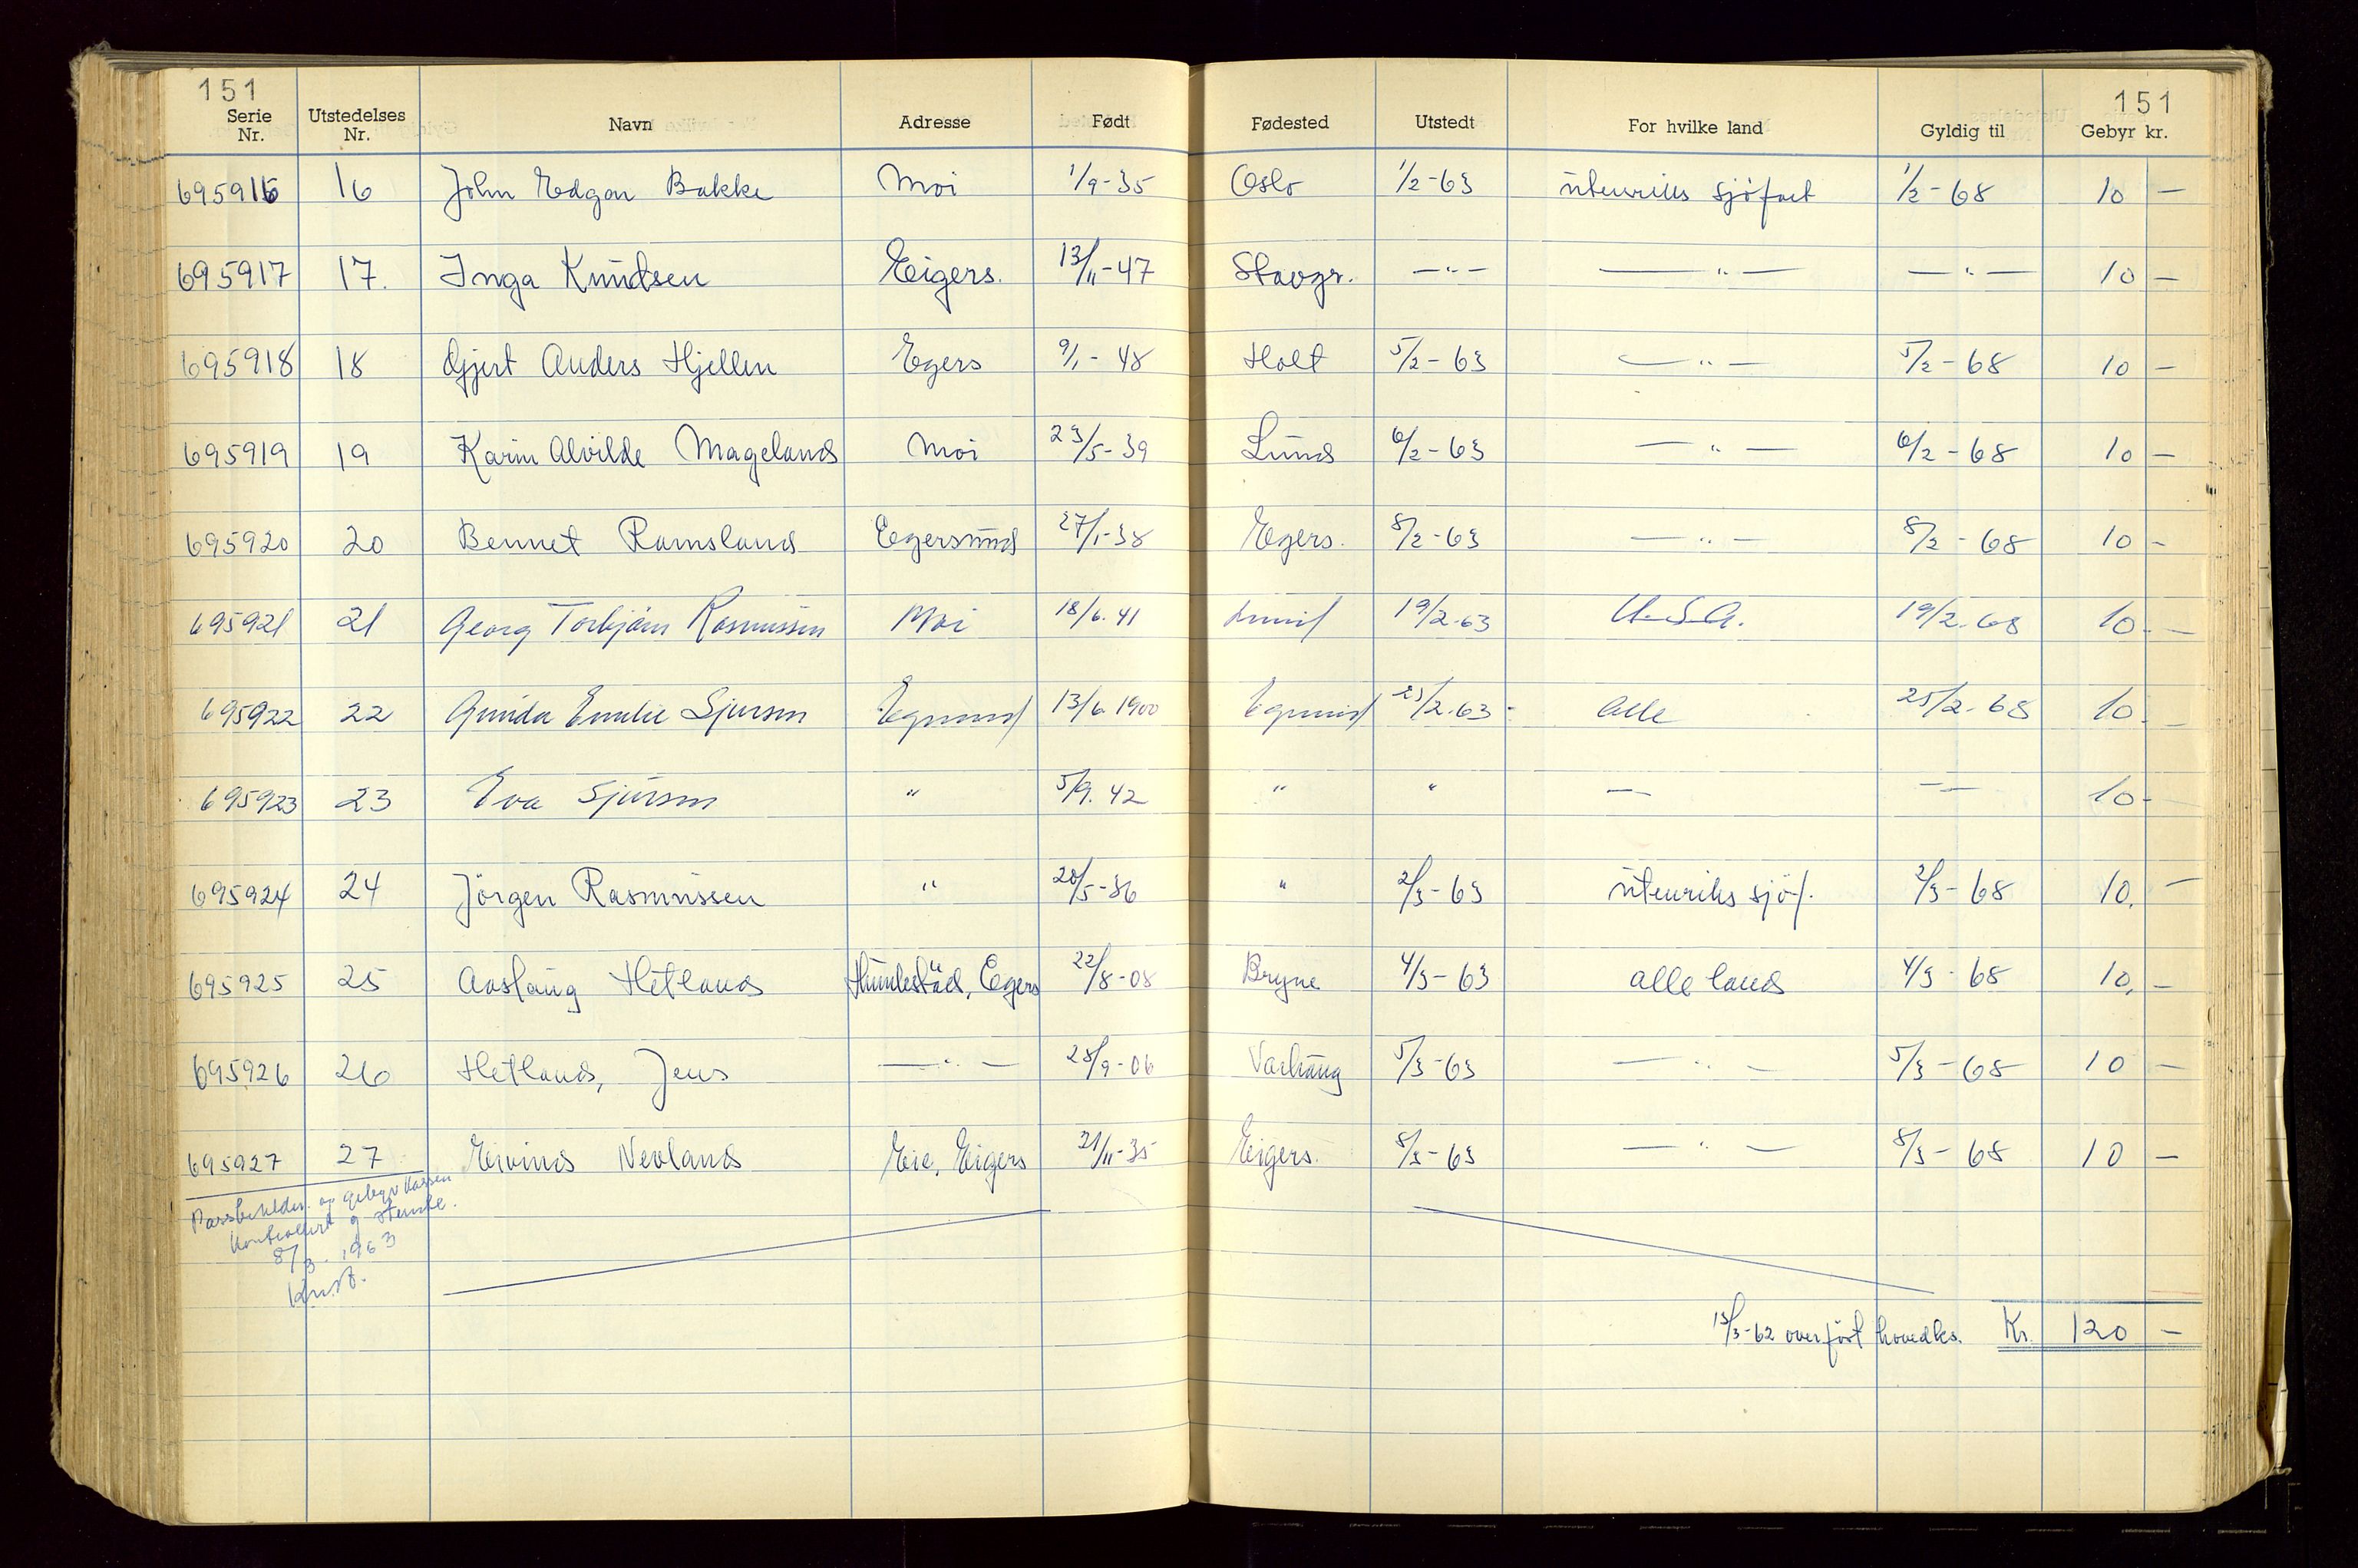 151 151
Serie Nr. Utstedelses Nr. Navn Adresse Født Fødested Utstedt For hvilke land Gyldig til Gebyr kr.
695916 16 John Edgar Bakke Moi 1/9-35 Oslo 1/2-63 utenriks sjöfart 1/2-68 10 —
695917 17. Inga Knudsen Eigers. 13/11-47 Stavgr. —"— —"— —"— 10 —
695918 18 Gjert Anders Hjellen Egers 9/1-48 Holt 5/2-63 —"— 5/2-68 10 —
695919 19 Karin Alvilde Mageland Moi 23/5-39 Lund 6/2-63 —"— 6/2-68 10 —
695920 20 Bennet Ramsland Egersund 27/1-38 Egers. 8/2-63 —"— 8/2-68 10 -
695921 21 Georg Torbjörn Rasmussen Moi 18/6.41 Lund 19/2.63 U.S.A. 19/2.68 10.—
695922 22 Gunda Emilie Sjursen Egersund 13/6.1900 Egersund 25/2.63 Alle 25/2.68 10.—
695923 23 Eva Sjursen " 5/9.42 " " — — 10.-
695924 24 Jörgen Rasmussen " 20/5-36 " 2/3-63 utenriks sjöf. 2/3-68 10, —
695925 25 Aaslaug Hetland Egers 22/8-08 Bryne 4/3-63 alle land 4/3-68 10, —
695926 26 Hetland, Jens —"— 28/9-06 Varhaug 5/3-63 —"— 5/3-68 10 —
695927 27 Eivind Nevland Eie, Eigers 21/11-35 Eigers. 8/3-63 —"— 8/3-68 10 —
Passbeholdn. og gebyr kassen
kontrollert g stemte.
8/3. 1963
15/3-62 overfört hovedks. Kr. 120 —